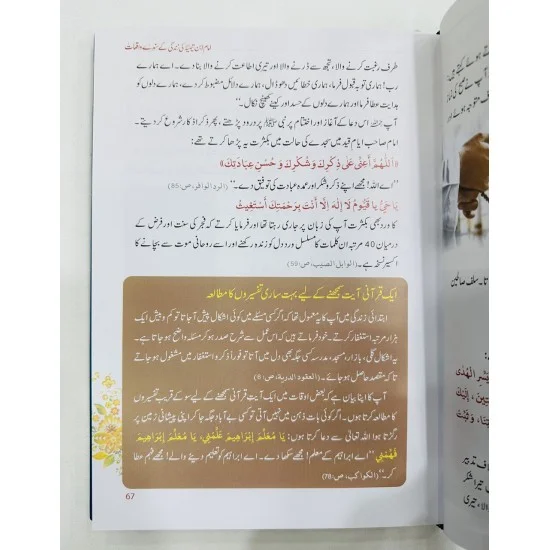 امام ابن تیمیہ کی زندگی کے سنہرے واقعات
طرف رغبت کرنے والا، تجھ سے ڈرنے والا اور تیری اطاعت کرنے والا بنا دے۔ اے ہمارے
رب! ہماری توبہ قبول فرما، ہماری خطائیں دھو ڈال، ہمارے دلائل مضبوط کر دے، ہمارے دلوں کو
ہدایت عطا فرما اور ہمارے دلوں کے حسد اور کینے کھینچ نکال۔‘‘
آپ اس دعا کے آغاز اور اختتام پر نبی ﷺ پر درود پڑھتے، پھر ذکر اذکار شروع کر دیتے۔
امام صاحب ایام قید میں سجدے کی حالت میں بکثرت یہ پڑھا کرتے تھے:
«اَللّٰهُمَّ أَعِنِّي عَلٰى ذِكْرِكَ وَ شُكْرِكَ وَ حُسْنِ عِبَادَتِكَ»
’’اے اللہ! مجھے اپنے ذکر و شکر اور عمدہ عبادت کی توفیق دے۔‘‘ (الرد الوافر، ص: 65)
يَا حَيُّ يَا قَيُّومُ لَا إِلٰهَ إِلَّا أَنْتَ بِرَحْمَتِكَ أَسْتَغِيثُ
کا ورد بھی بکثرت آپ کی زبان پر جاری رہتا تھا اور فرمایا کرتے کہ فجر کی سنت اور فرض کے
درمیان 40 مرتبہ ان کلمات کا مسلسل ورد دل کو زندہ رکھنے اور اسے روحانی موت سے بچانے کا
اکسیر نسخہ ہے۔ (الوابل الصیب، ص: 59)
ایک قرآنی آیت سمجھنے کے لیے بہت ساری تفسیروں کا مطالعہ
ابتدائی زندگی میں آپ کا یہ معمول تھا کہ اگر کسی مسئلے میں کوئی اشکال پیش آ جاتا تو کم و بیش ایک
ہزار مرتبہ استغفار کرتے۔ خود فرماتے ہیں کہ اس عمل سے شرح صدر ہو کر مسئلہ واضح ہو جاتا ہے۔
یہ اشکال گلی، بازار، مسجد، مدرسہ کسی جگہ بھی دل میں آتا تو فوراً ذکر و استغفار میں مشغول ہو جاتے
تا کہ مقصد حاصل ہو جائے۔ (العقود الدریۃ، ص: 6)
آپ کا اپنا بیان ہے کہ بعض اوقات میں ایک آیت قرآنی سمجھنے کے لیے سو کے قریب تفسیروں
کا مطالعہ کرتا ہوں۔ اگر کوئی بات ذہن میں نہیں آتی تو کسی بے آباد جگہ جا کر اپنی پیشانی زمین پر
رگڑتا ہوا اللہ تعالیٰ سے دعا کرتا ہوں: يَا مُعَلِّمَ إِبْرَاهِيمَ عَلِّمْنِي، يَا مُعَلِّمَ إِبْرَاهِيمَ
فَهِّمْنِي ’’اے ابراہیم کے معلم! مجھے سکھا دے۔ اے ابراہیم کو تعلیم دینے والے! مجھے فہم عطا
کر۔‘‘ (الکواکب، ص: 78)
67